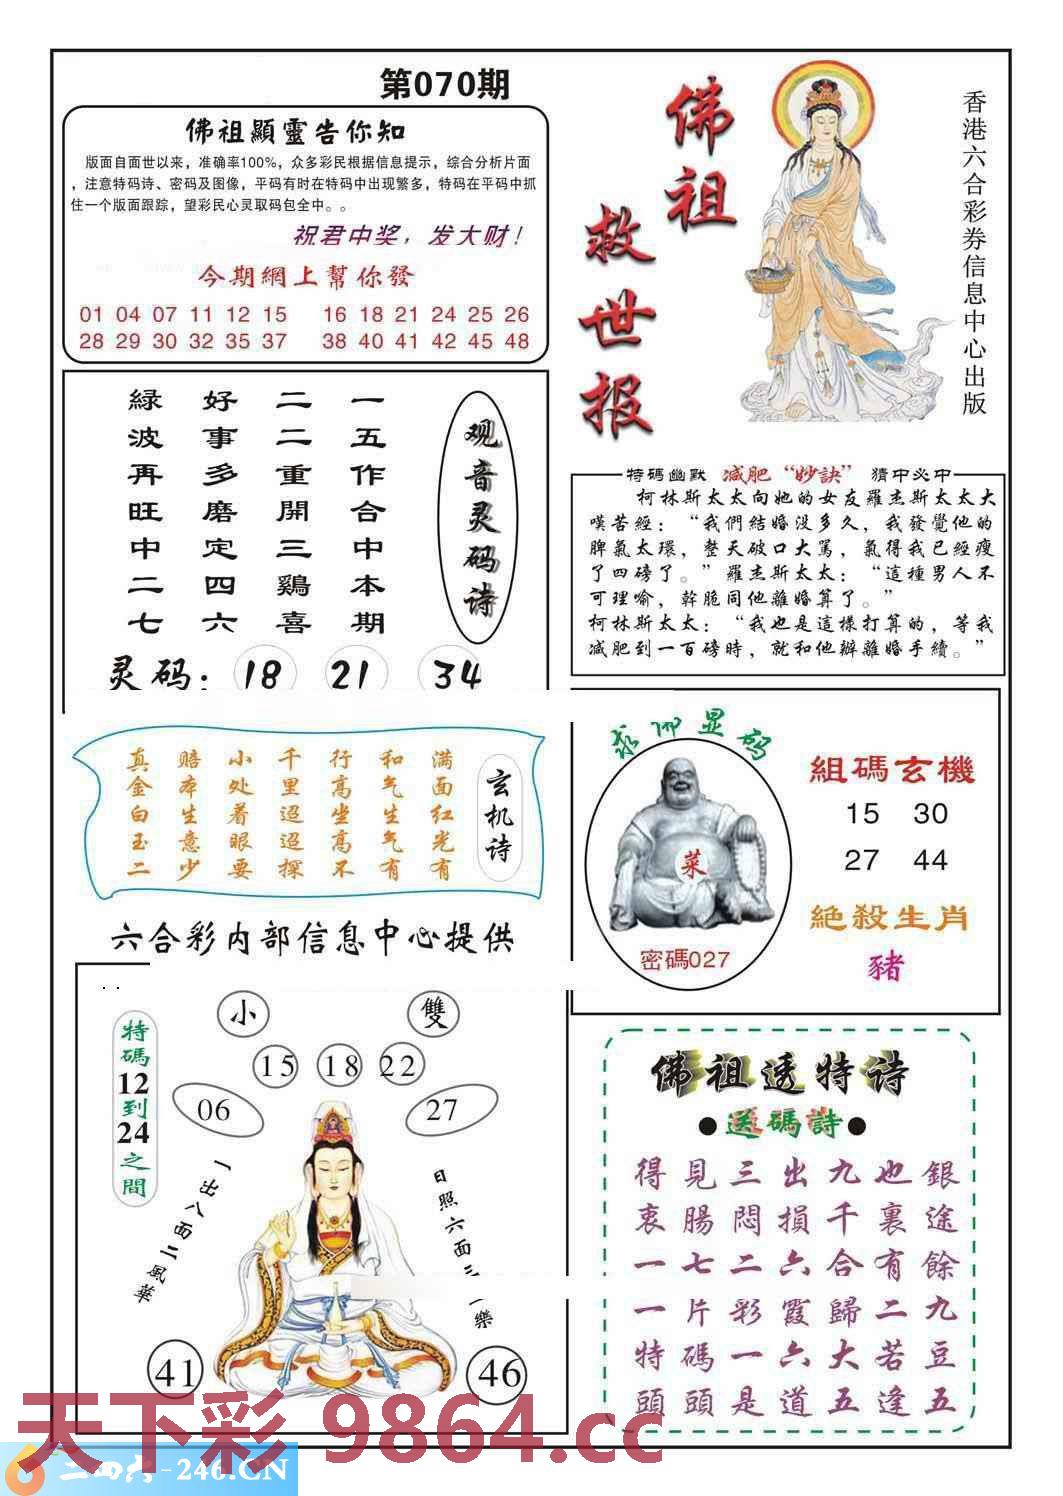 第070期
佛祖顯靈告你知
版面自面世以来，准确率100%，众多彩民根据信息提示，综合分析片面
，注意特码诗、密码及图像，平码有时在特码中出现繁多，特码在平码中抓
住一个版面跟踪，望彩民心灵取码包全中。。
祝君中奖，发大财！
今期網上幫你發
01 04 07 11 12 15 16 18 21 24 25 26
28 29 30 32 35 37 38 40 41 42 45 48
佛祖
救世报
香港六合彩券信息中心出版
观音灵码诗
一五作合中本期
二二重開三鷄喜
好事多磨定四六
緑波再旺中二七
灵码：18 21 34
特碼幽默 减肥“妙訣” 猜中必中
柯林斯太太向她的女友羅杰斯太太大
嘆苦經：“我們結婚没多久，我發覺他的
脾氣太環，整天破口大罵，氣得我已經瘦
了四磅了。”羅杰斯太太：“這種男人不
可理喻，幹脆同他離婚算了。”
柯林斯太太：“我也是這樣打算的，等我
减肥到一百磅時，就和他辦離婚手續。”
玄机诗
满面红光有
和气生气有
行高坐高不
千里迢迢探
小处着眼要
赔本生意少
真金白玉二
六合彩内部信息中心提供
求佛显码
菜
密碼027
組碼玄機
15 30
27 44
絶殺生肖
豬
特碼12到24之間
小 雙
15 18 22
06 27
一出八面二風華
日照六面三 樂
41 46
佛祖透特诗
●送碼詩●
得見三出九也銀
衷腸悶損千裏途
一七二六合有餘
一片彩霞歸二九
特碼一六大若豆
頭頭是道五逢五
天下彩 9864.cc
二四六-246.CN